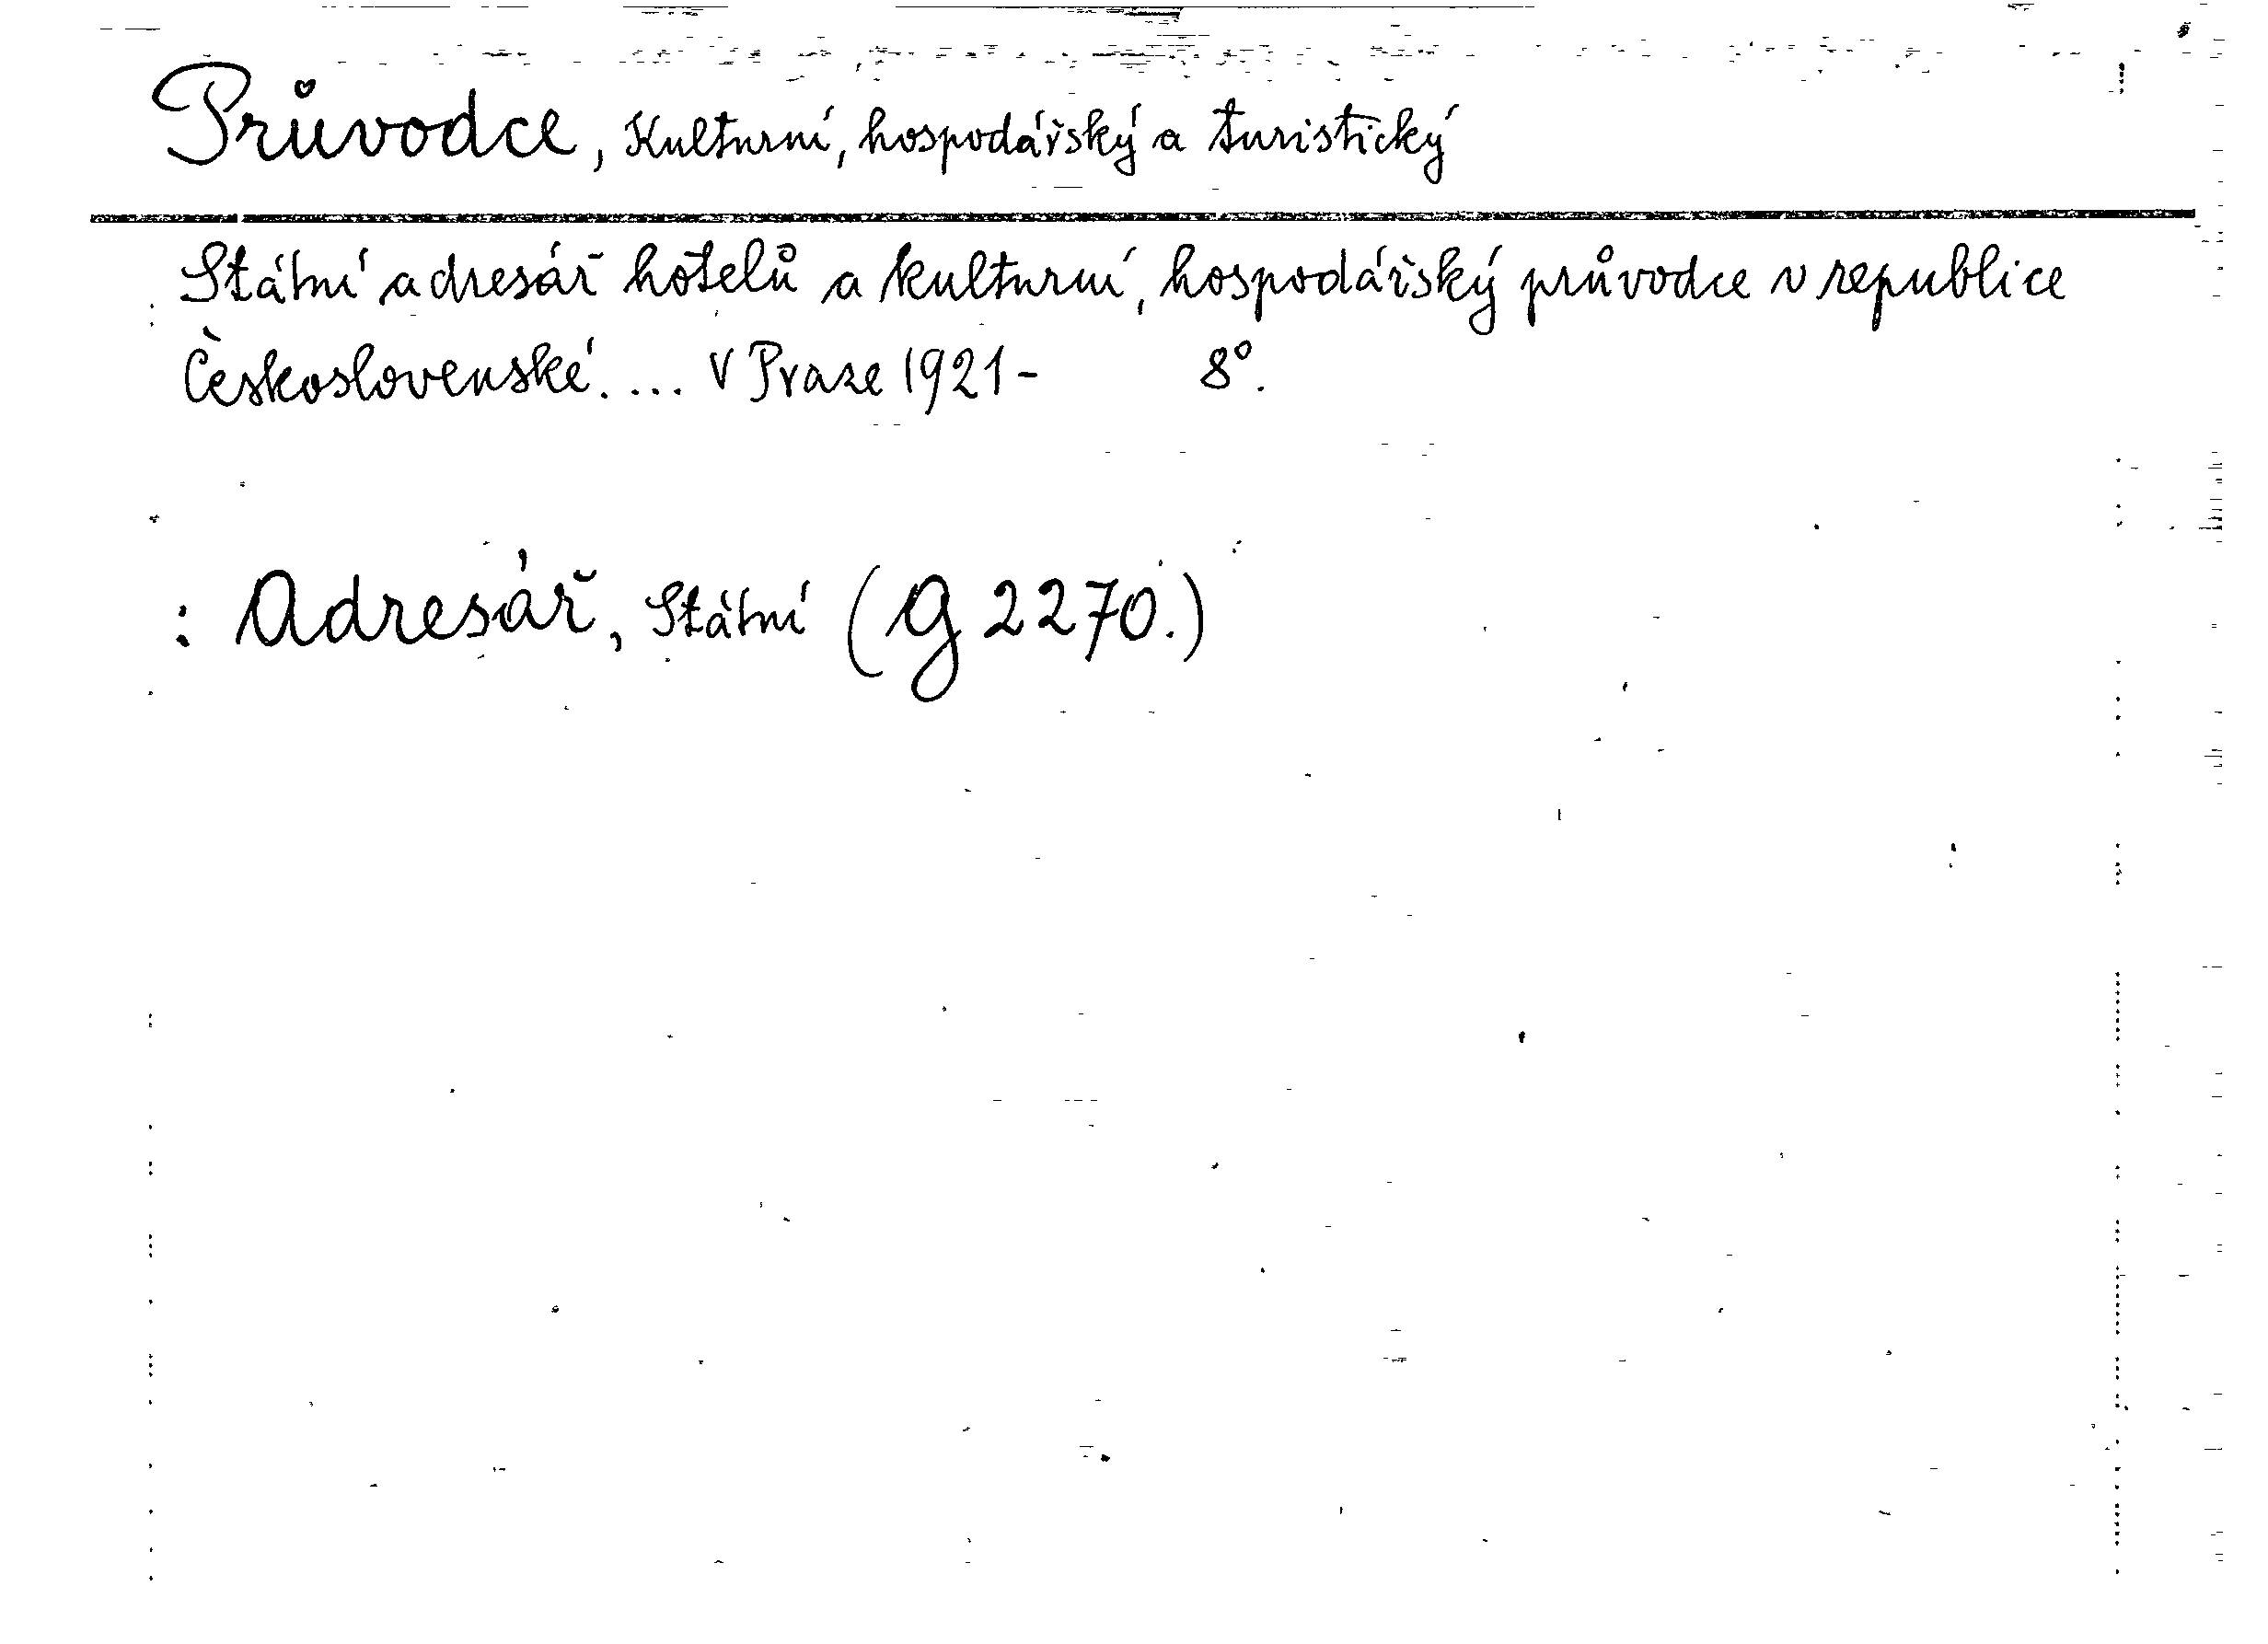 Průvodce, Kulturní, hospodářský a turistický
Státní adresář hotelů a kulturní, hospodářský průvodce v republice
Československé. ... V Praze 1921- 8°.
: Adresář, Státní (G 2270.)